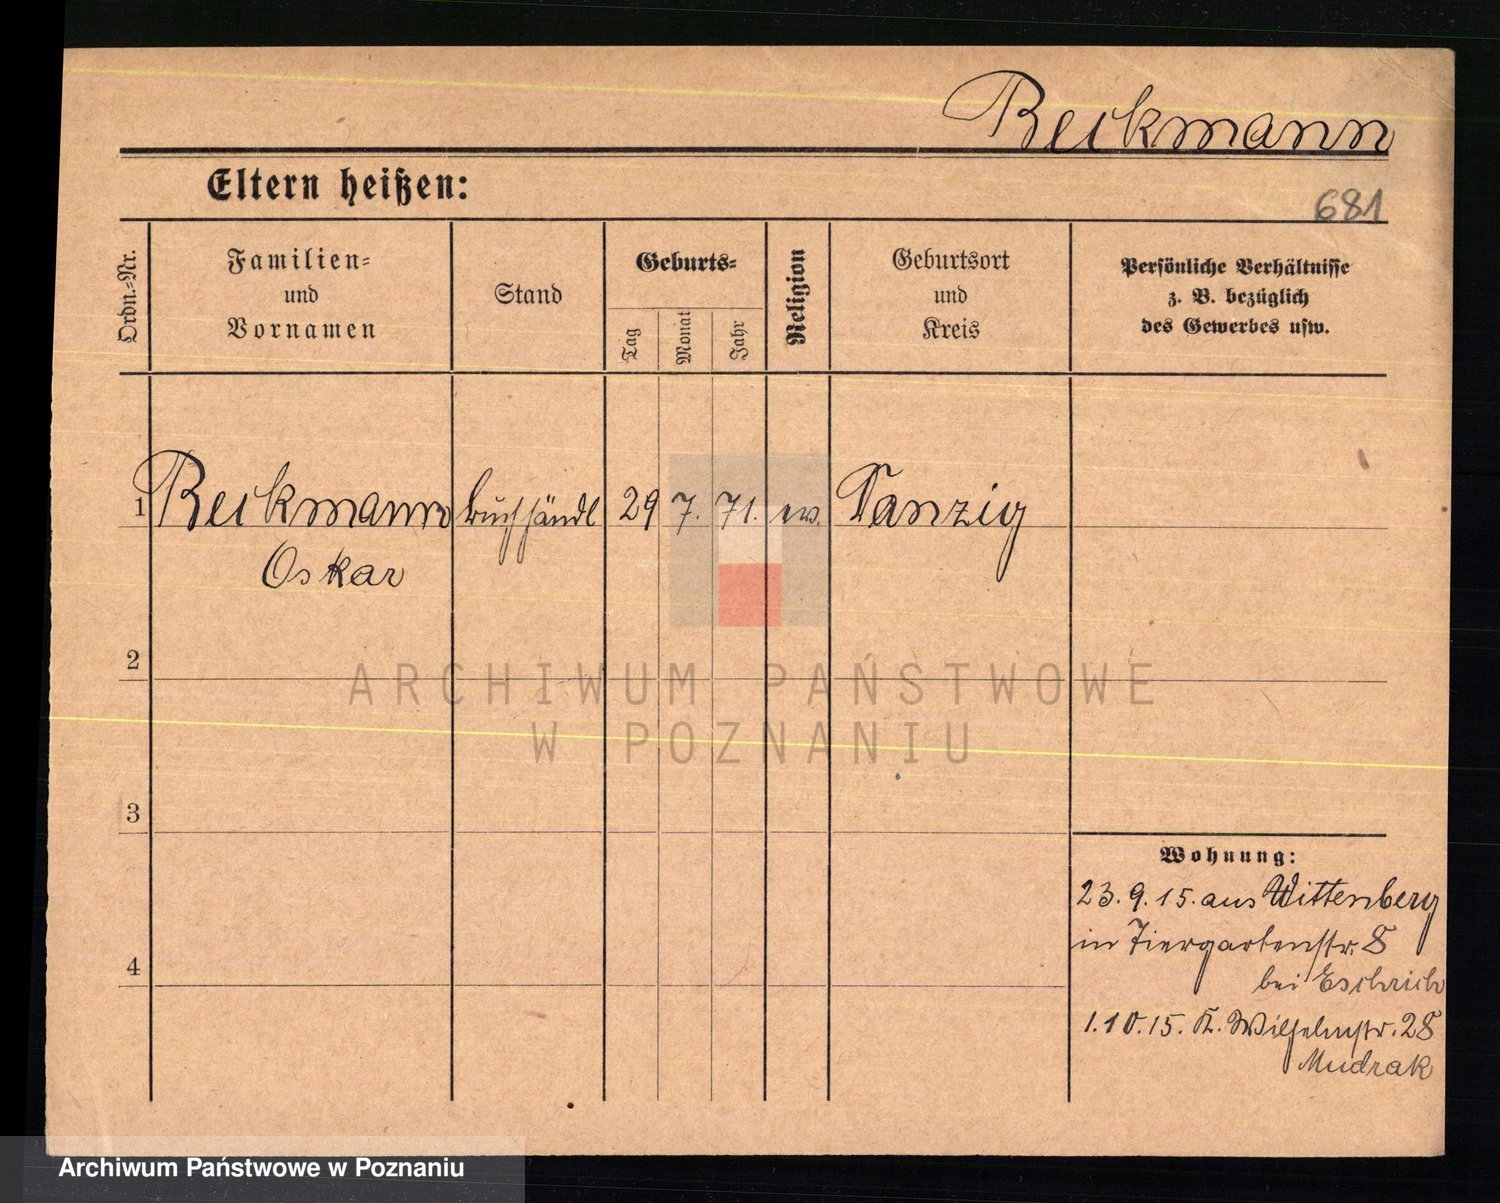 Beckmann
Eltern heißen:
681
Ordn.-Nr.
Familien-
und
Vornamen
Stand
Geburts-
Tag
Monat
Jahr
Religion
Geburtsort
und
Kreis
Persönliche Verhältnisse
z. B. bezüglich
des Gewerbes usw.
1 Beckmann Buchhändl 29 7. 71. ev. Danzig
Oskar
2
3
4
Wohnung:
23.9.15. aus Wittenberg
in Tiergartenstr. 8
bei Eschrich
1.10.15. K. Wilhelmstr. 28
Mudrak
ARCHIWUM PAŃSTWOWE
W POZNANIU
Archiwum Państwowe w Poznaniu